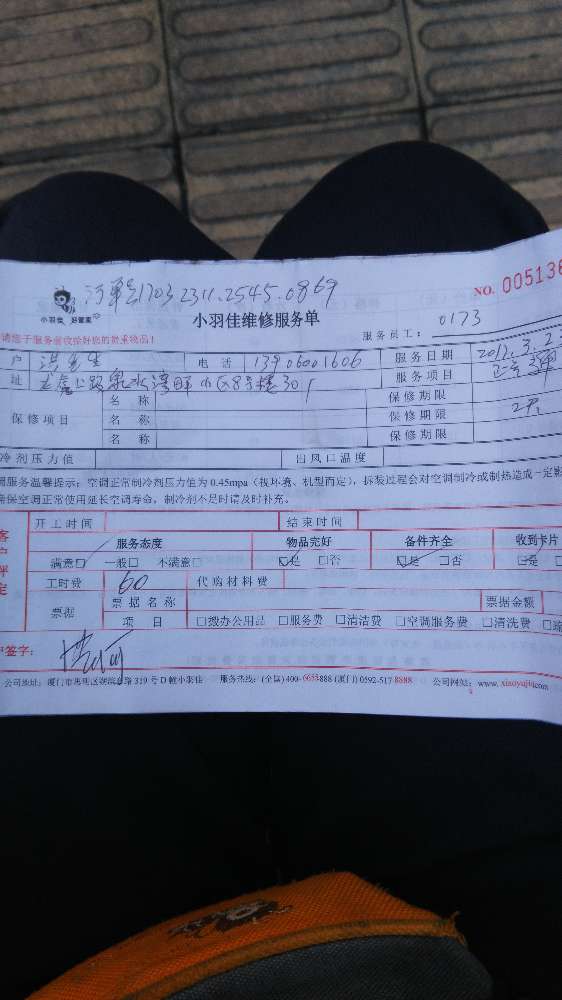 订单号1703 2311.2545.0869
NO. 005136
小羽佳 好管家
小羽佳维修服务单
服务员工： 0173
请您于服务前收拾好您的贵重物品！
户 洪先生 电 话 13906001606 服务日期 2017.3.2
址 小区8号楼301 服务项目
名 称 保修期限
保修项目 名 称 保修期限
名 称 保修期限
冷剂压力值 出风口温度
调服务温馨提示：空调正常制冷剂压力值为 0.45mpa（视环境、机型而定），拆装过程会对空调制冷或制热造成一定影
确保空调正常使用延长空调寿命，制冷剂不足时请及时补充。
开工时间 结束时间
客户评定
服务态度 物品完好 备件齐全 收到卡片
满意□ 一般□ 不满意□ □是 □否 □是 □否 □是
工时费 60 代购材料费
票据 票据名称 票据金额
项 目 □拨办公用品 □服务费 □清洁费 □空调服务费 □清洗费
户签字：
公司地址：厦门市思明区 319 号 D 幢小羽佳 服务热线：(全国)400-6655888 (厦门) 0592-517 8888 公司网站：www. xiaoyujia.com